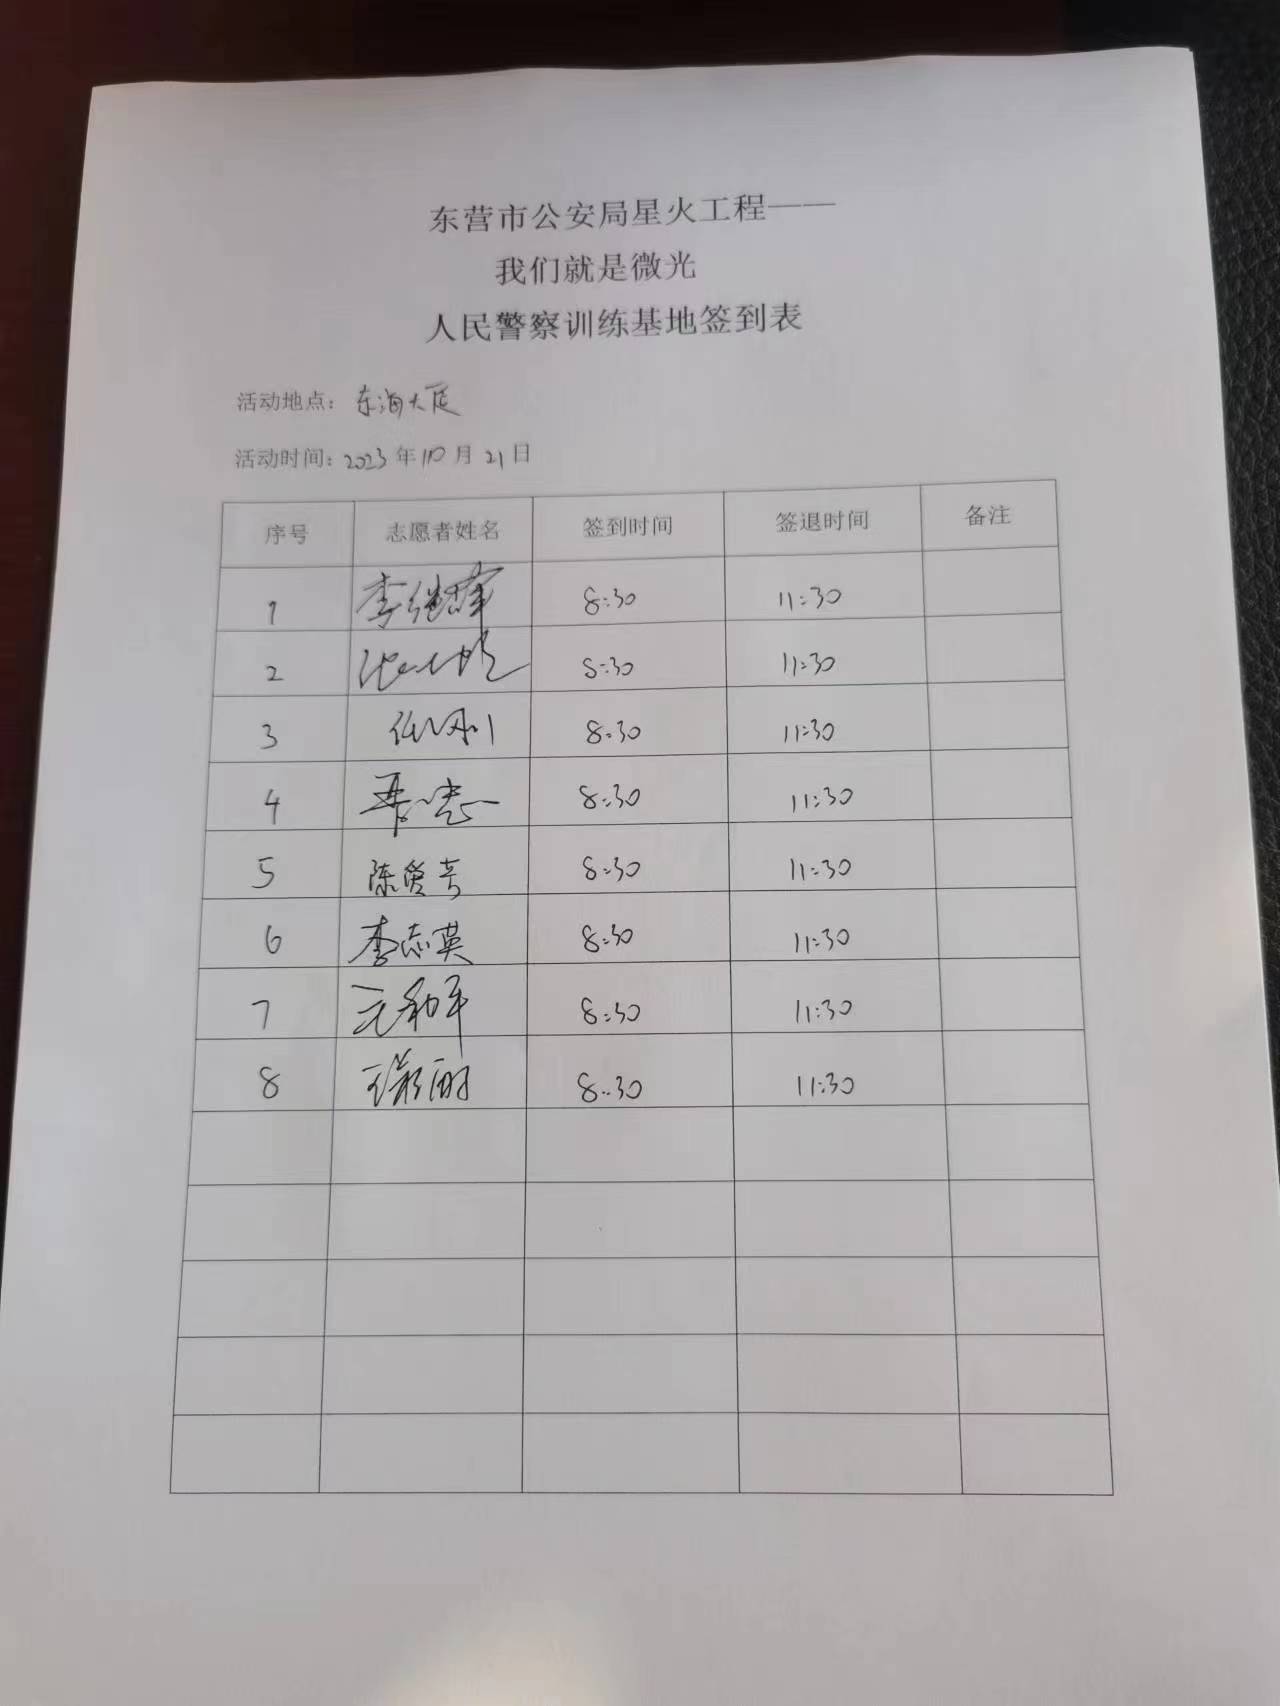 东营市公安局星火工程——
我们就是微光
人民警察训练基地签到表
活动地点：东海大
活动时间：2023年10月21日
序号 志愿者姓名 签到时间 签退时间 备注
1 李继 8:30 11:30
2 8:30 11:30
3 任刚 8:30 11:30
4 8:30 11:30
5 陈爱芳 8:30 11:30
6 李志英 8:30 11:30
7 和平 8:30 11:30
8 8:30 11:30